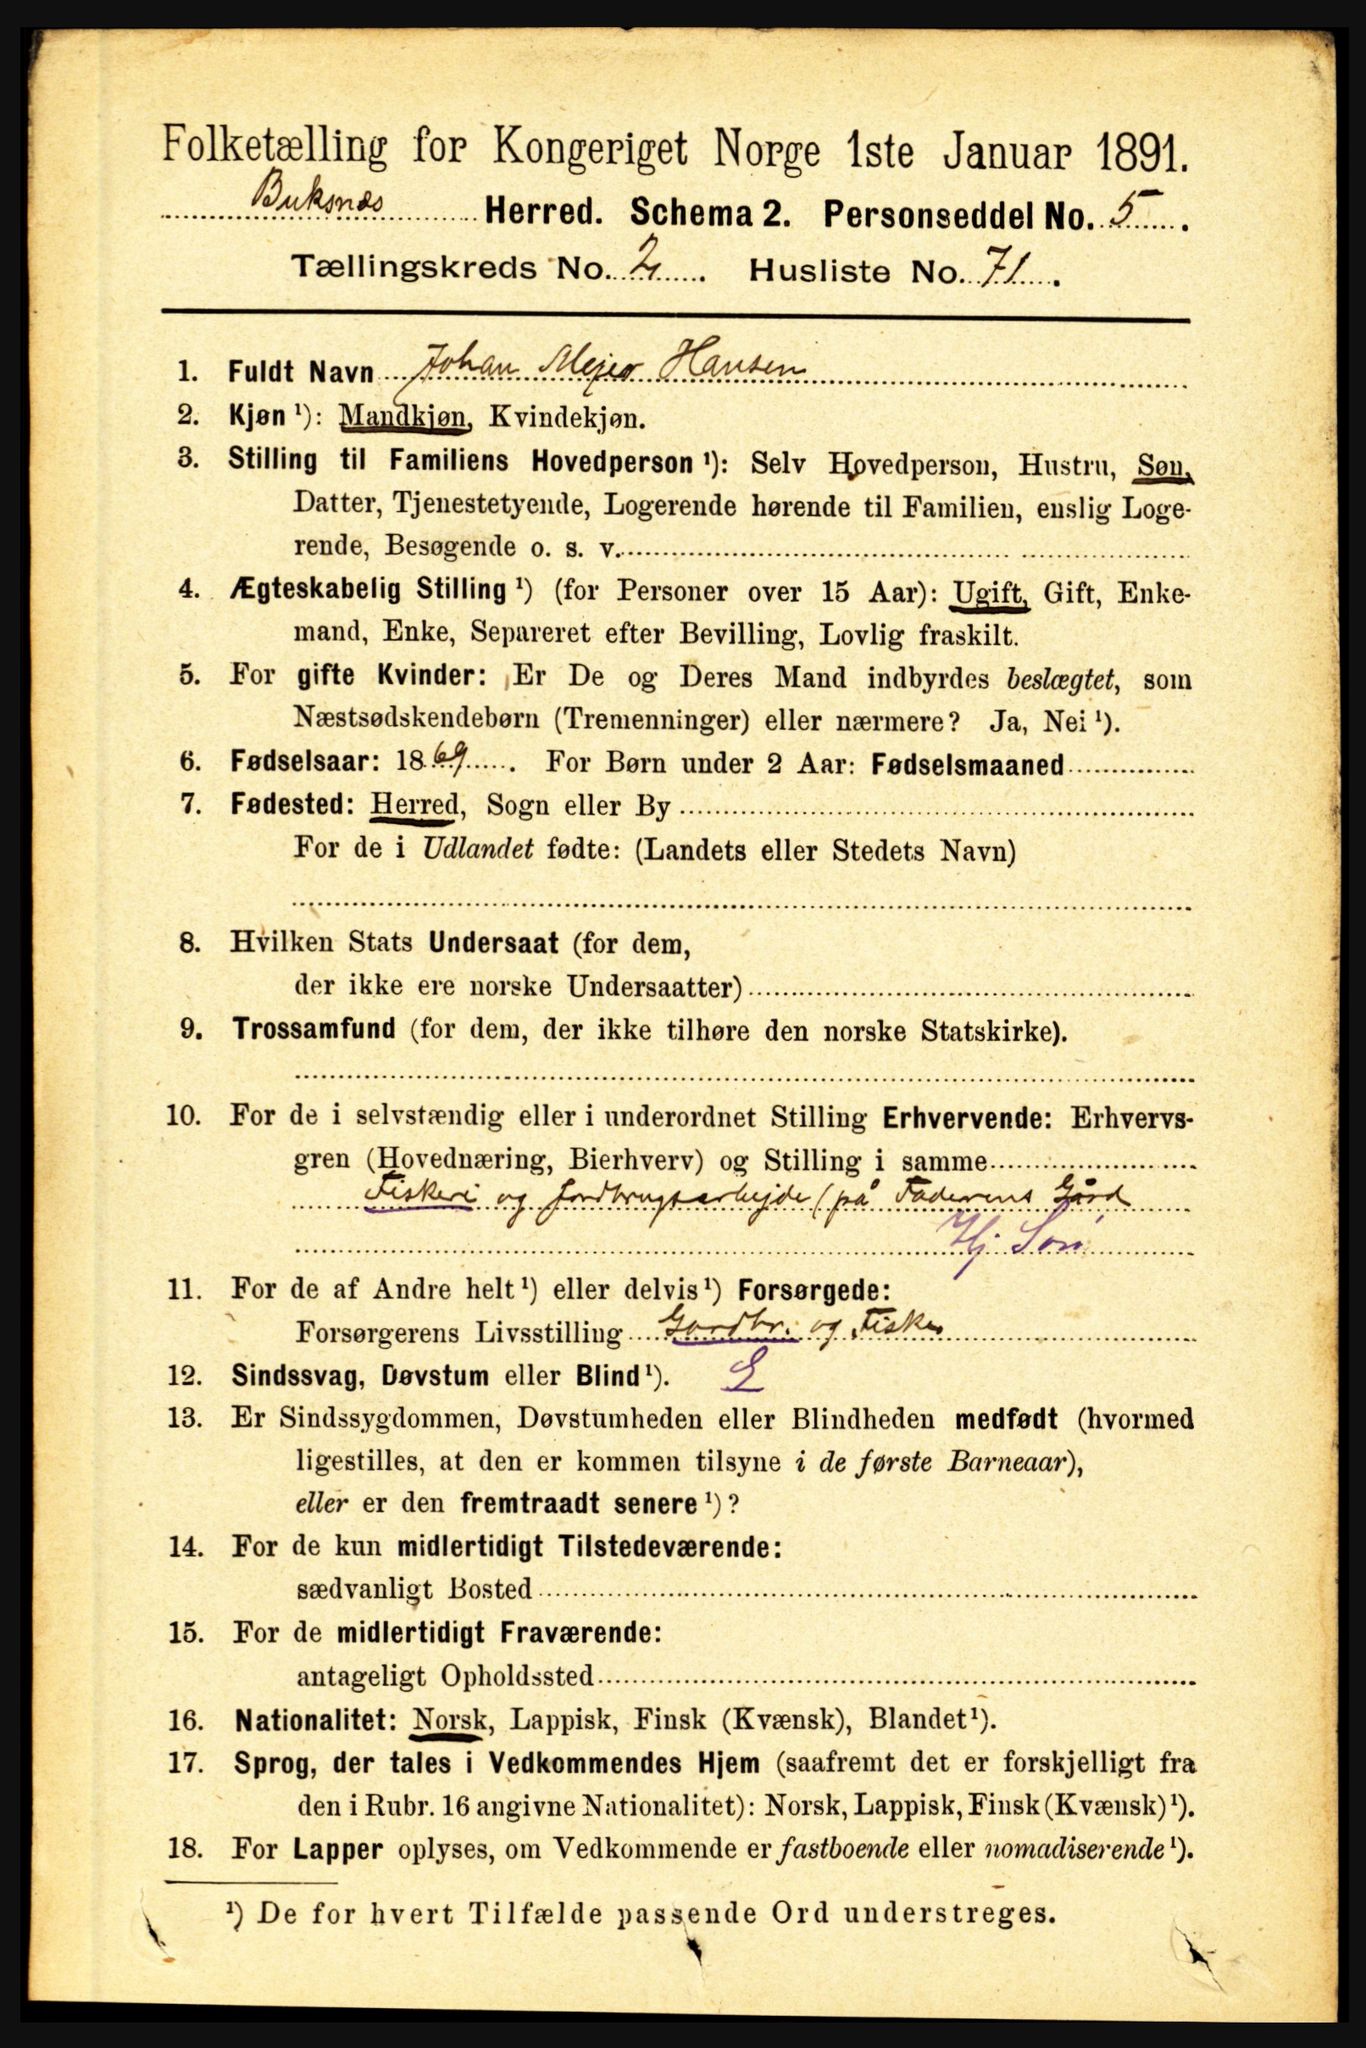 Folketælling for Kongeriget Norge 1ste Januar 1891.
Buksnæs Herred. Schema 2. Personseddel No. 5.
Tællingskreds No. 2. Husliste No. 71.
1. Fuldt Navn Johan Mejer Hansen
2. Kjøn ¹): Mandkjøn, Kvindekjøn.
3. Stilling til Familiens Hovedperson ¹): Selv Hovedperson, Hustru, Søn,
Datter, Tjenestetyende, Logerende hørende til Familien, enslig Loge-
rende, Besøgende o. s. v.
4. Ægteskabelig Stilling ¹) (for Personer over 15 Aar): Ugift, Gift, Enke-
mand, Enke, Separeret efter Bevilling, Lovlig fraskilt.
5. For gifte Kvinder: Er De og Deres Mand indbyrdes beslægtet, som
Næstsødskendebørn (Tremenninger) eller nærmere? Ja, Nei ¹).
6. Fødselsaar: 1869. For Børn under 2 Aar: Fødselsmaaned
7. Fødested: Herred, Sogn eller By
For de i Udlandet fødte: (Landets eller Stedets Navn)
8. Hvilken Stats Undersaat (for dem,
der ikke ere norske Undersaatter)
9. Trossamfund (for dem, der ikke tilhøre den norske Statskirke).
10. For de i selvstændig eller i underordnet Stilling Erhvervende: Erhvervs-
gren (Hovednæring, Bierhverv) og Stilling i samme
Fiskeri og Jordbrugsarbejde (på Faderens Gård
Hj Søn
11. For de af Andre helt ¹) eller delvis ¹) Forsørgede:
Forsørgerens Livsstilling Gardbr. og Fisker
12. Sindssvag, Døvstum eller Blind ¹).
13. Er Sindssygdommen, Døvstumheden eller Blindheden medfødt (hvormed
ligestilles, at den er kommen tilsyne i de første Barneaar),
eller er den fremtraadt senere ¹)?
14. For de kun midlertidigt Tilstedeværende:
sædvanligt Bosted
15. For de midlertidigt Fraværende:
antageligt Opholdssted
16. Nationalitet: Norsk, Lappisk, Finsk (Kvænsk), Blandet ¹).
17. Sprog, der tales i Vedkommendes Hjem (saafremt det er forskjelligt fra
den i Rubr. 16 angivne Nationalitet): Norsk, Lappisk, Finsk (Kvænsk) ¹).
18. For Lapper oplyses, om Vedkommende er fastboende eller nomadiserende ¹).
¹) De for hvert Tilfælde passende Ord understreges.